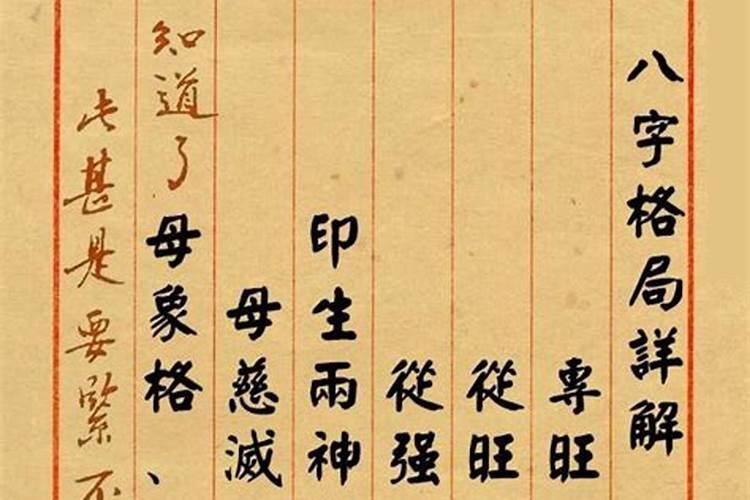 八字格局詳解
專旺
從旺
從强
印生兩神
母慈滅
知道了母象格、
此甚是要緊不